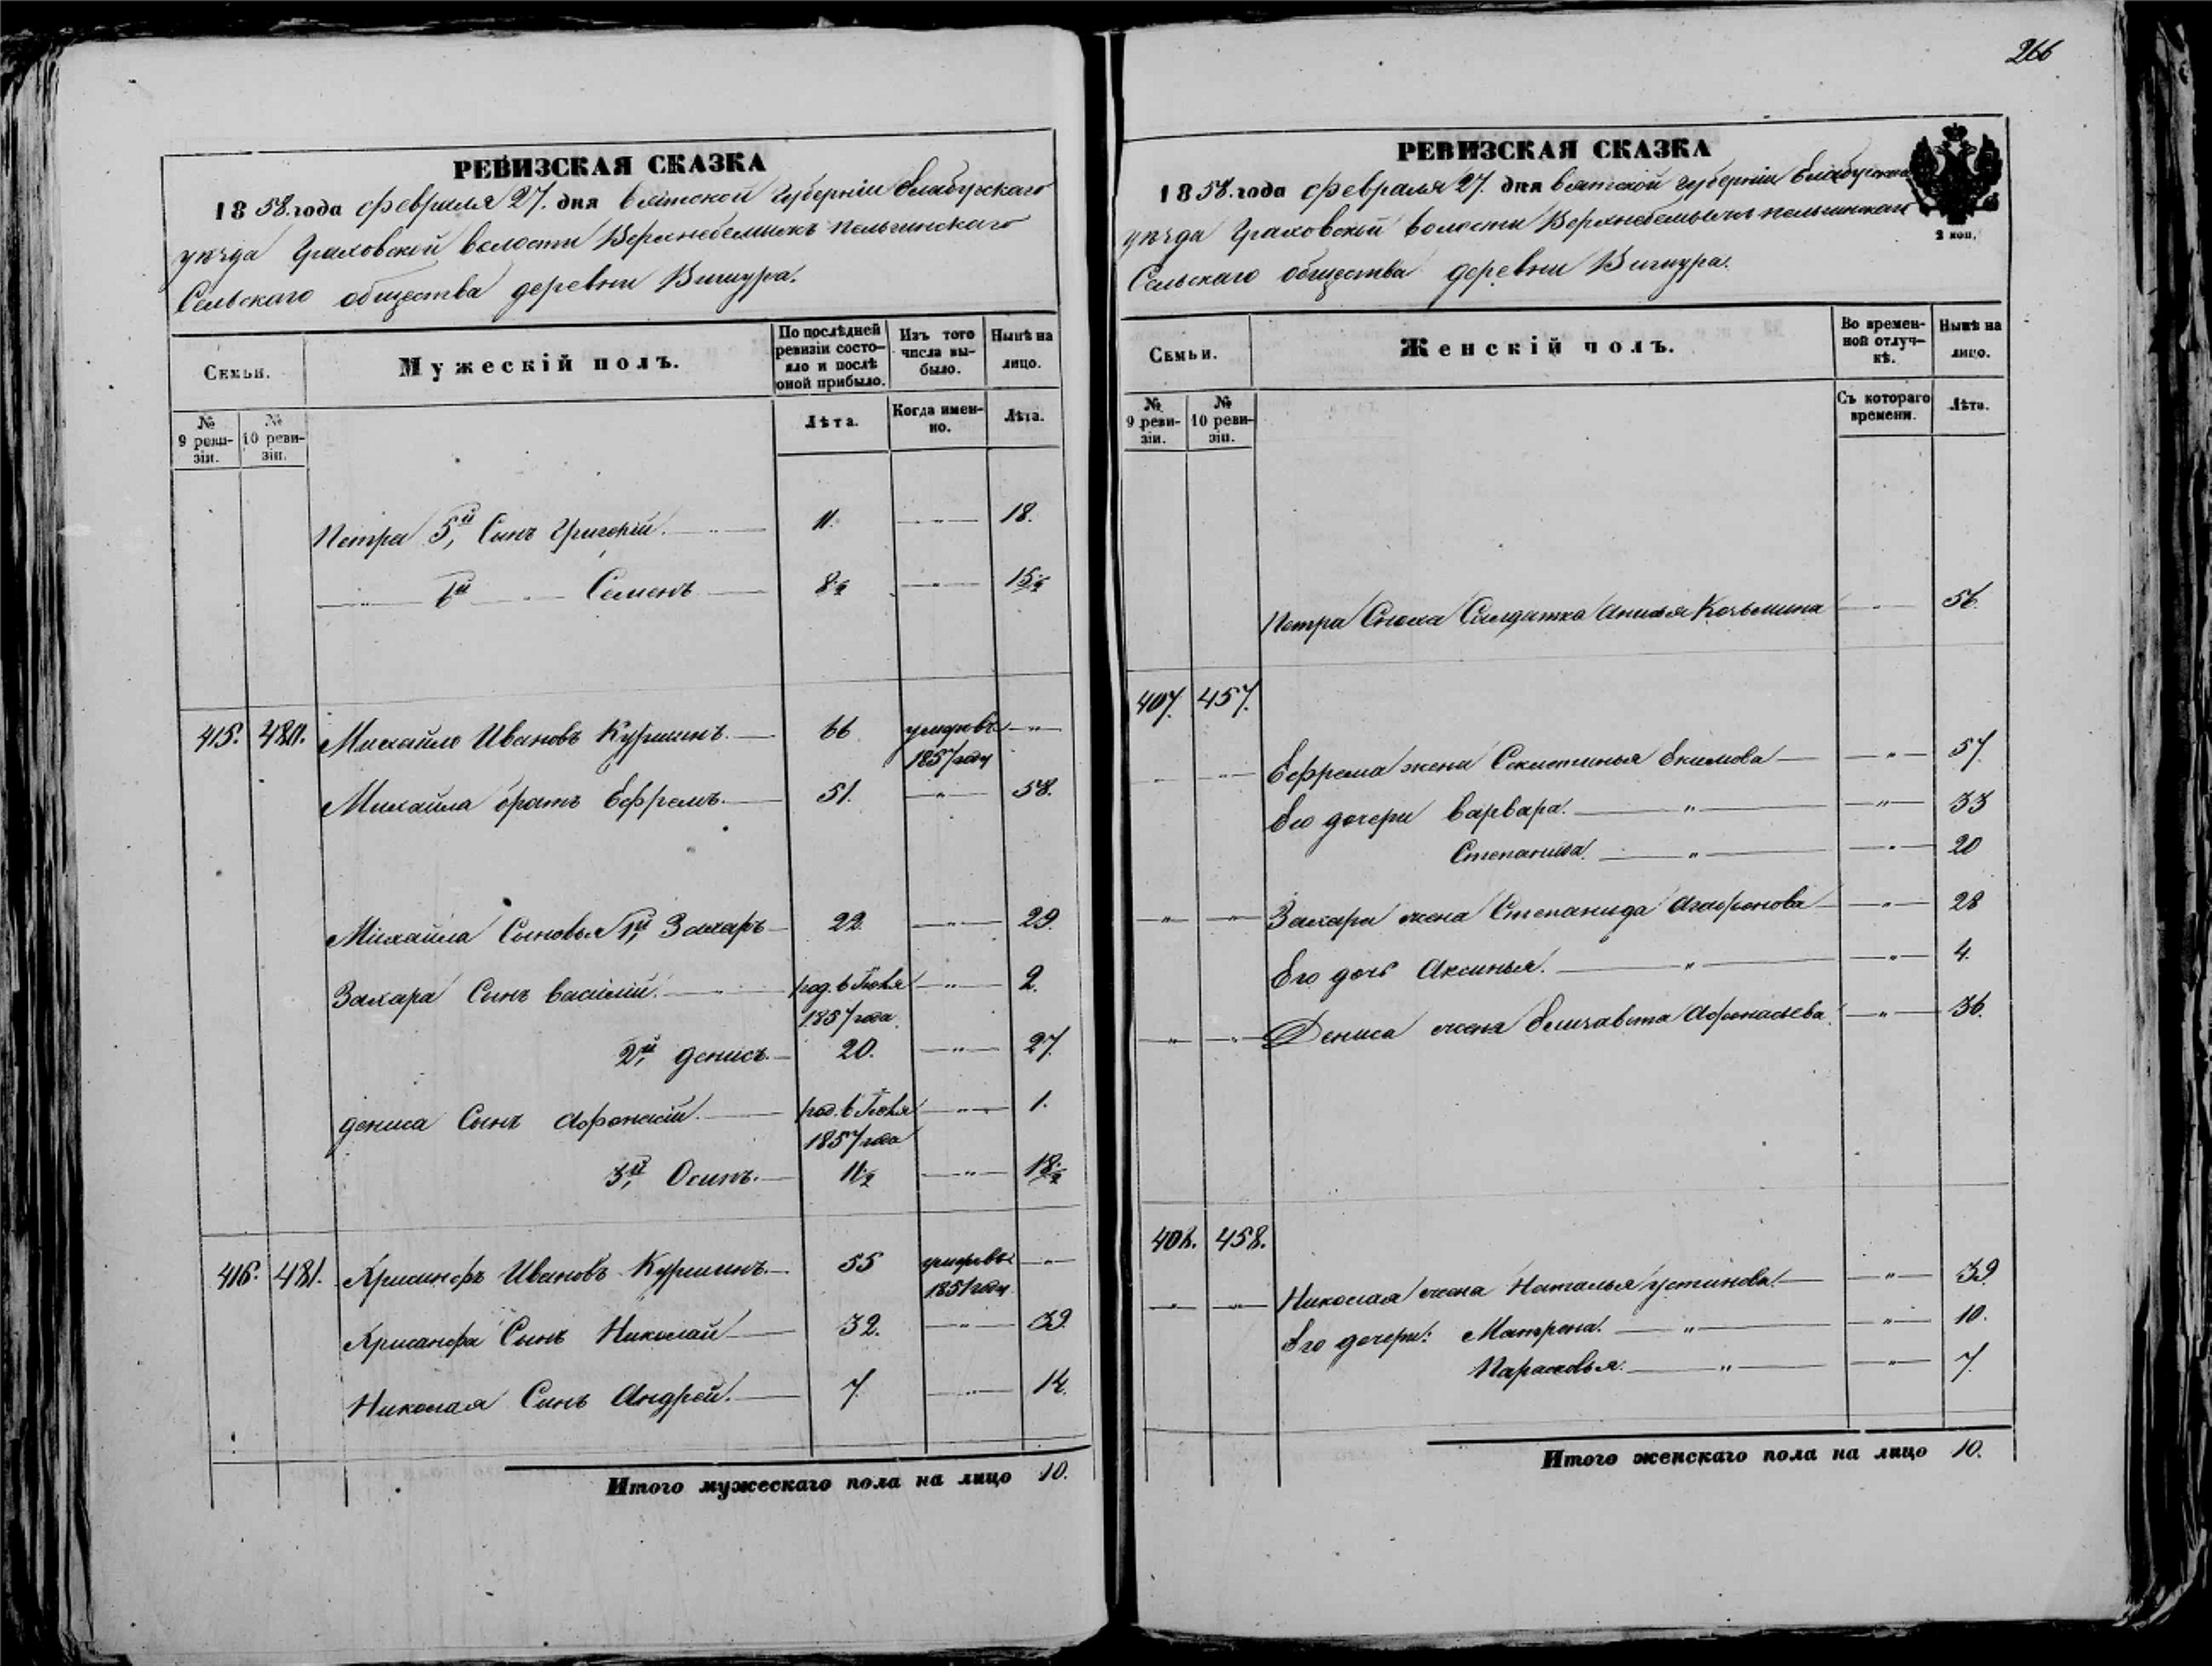 266
РЕВИЗСКАЯ СКАЗКА
1858. года февраля 27. дня Вятской Губерніи Елабужскаго
уѣзда Граховской волости
Сельскаго общества деревни
Семьи.
Мужескій полъ.
По послѣдней ревизіи состояло и послѣ оной прибыло.
Изъ того числа выбыло.
Нынѣ на лицо.
№ 9 ревизіи.
№ 10 ревизіи.
Лѣта.
Когда именно.
Лѣта.
Петра 5й Сынъ Григорій. 11. — " — 18.
— " — 6й — " — Семенъ 8½ — " — 15½
415. 480. Михайло Ивановъ 66 умеръ въ 1857 году — " —
Михайла братъ Ефремъ. 51. — " — 58.
Михайла Сыновья 1й Захаръ 22. — " — 29.
Захара Сынъ Василій. род. в 1857 года — " — 2.
2й Денисъ 20. — " — 27.
Дениса Сынъ Афонасій. род. в 1857 года — " — 1.
3й Осипъ. 11½ — " — 18½
416. 481. Хрисанфъ Ивановъ 55 умеръ въ 1851 году — " —
Хрисанфа Сынъ Николай 32. — " — 39.
Николая Сынъ Андрей. 7. — " — 14.
Итого мужескаго пола на лицо 10.
РЕВИЗСКАЯ СКАЗКА
1858. года февраля 27. дня Вятской Губерніи Елабужскаго
уѣзда Граховской волости
Сельскаго общества деревни
2 коп.
Семьи.
Женскій полъ.
Во временной отлучкѣ.
Нынѣ на лицо.
№ 9 ревизіи.
№ 10 ревизіи.
Съ котораго времени.
Лѣта.
Петра Сноха Солдатка Козьмина — " — 56.
407. 457.
— " — — " — Ефрема жена Екимова — " — 57.
Его дочери Варвара. — " — — " — 33
Степанида. — " — — " — 20
— " — — " — Захара жена Степанида Агафонова — " — 28
Его дочь Аксинья. — " — — " — 4.
— " — — " — Дениса жена Елизавета Афонасьева. — " — 36.
408. 458.
— " — — " — Николая жена Наталья Устинова. — " — 39.
Его дочери: Матрена. — " — — " — 10.
Парасковья. — " — — " — 7.
Итого женскаго пола на лицо 10.